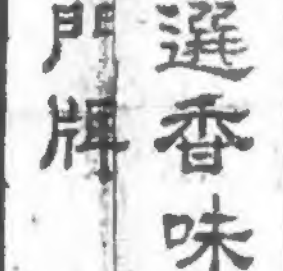 選香味
門牌